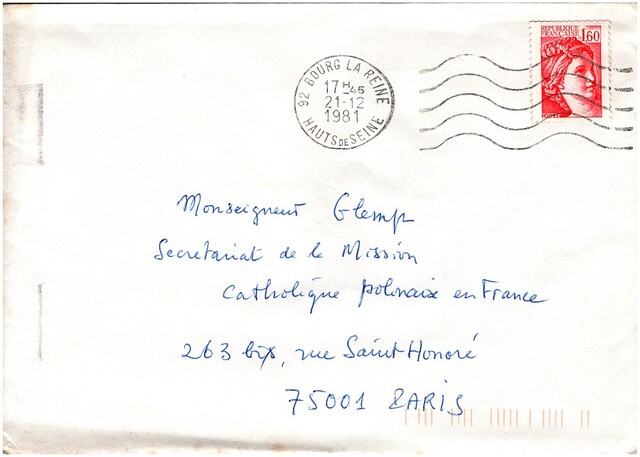 REPUBLIQUE
FRANCAISE 1,60
POSTES
92 BOURG LA REINE
17H45
21-12
1981
HAUTS DE SEINE
Monseigneur Glemp
Secretariat de la Mission
Catholique polonaise en France
263 bis, rue Saint Honoré
75001 PARIS